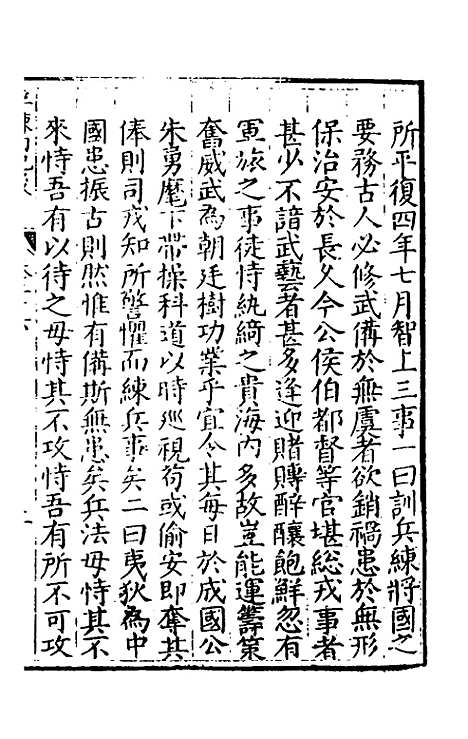 所平復四年七月智上三事一曰訓兵練將國之
要務古人必修武備於無虞者欲銷禍患於無形
保治安於長久今公侯伯都督等官堪総戎事者
甚少不諳武藝者甚多逢迎賭賻醉釀飽鮮忽有
軍旅之事徒恃紈綺之貴海内多故豈能運籌策
奮威武為朝廷樹功業乎宜令其每日於成國公
朱勇麾下帶操科道以時廵視茍或偷安即奪其
俸則司戎知所警懼而練兵事矣二曰夷狄為中
國患振古則然惟有備斯無患矣兵法毋恃其不
來恃吾有以待之毋恃其不攻恃吾有所不可攻